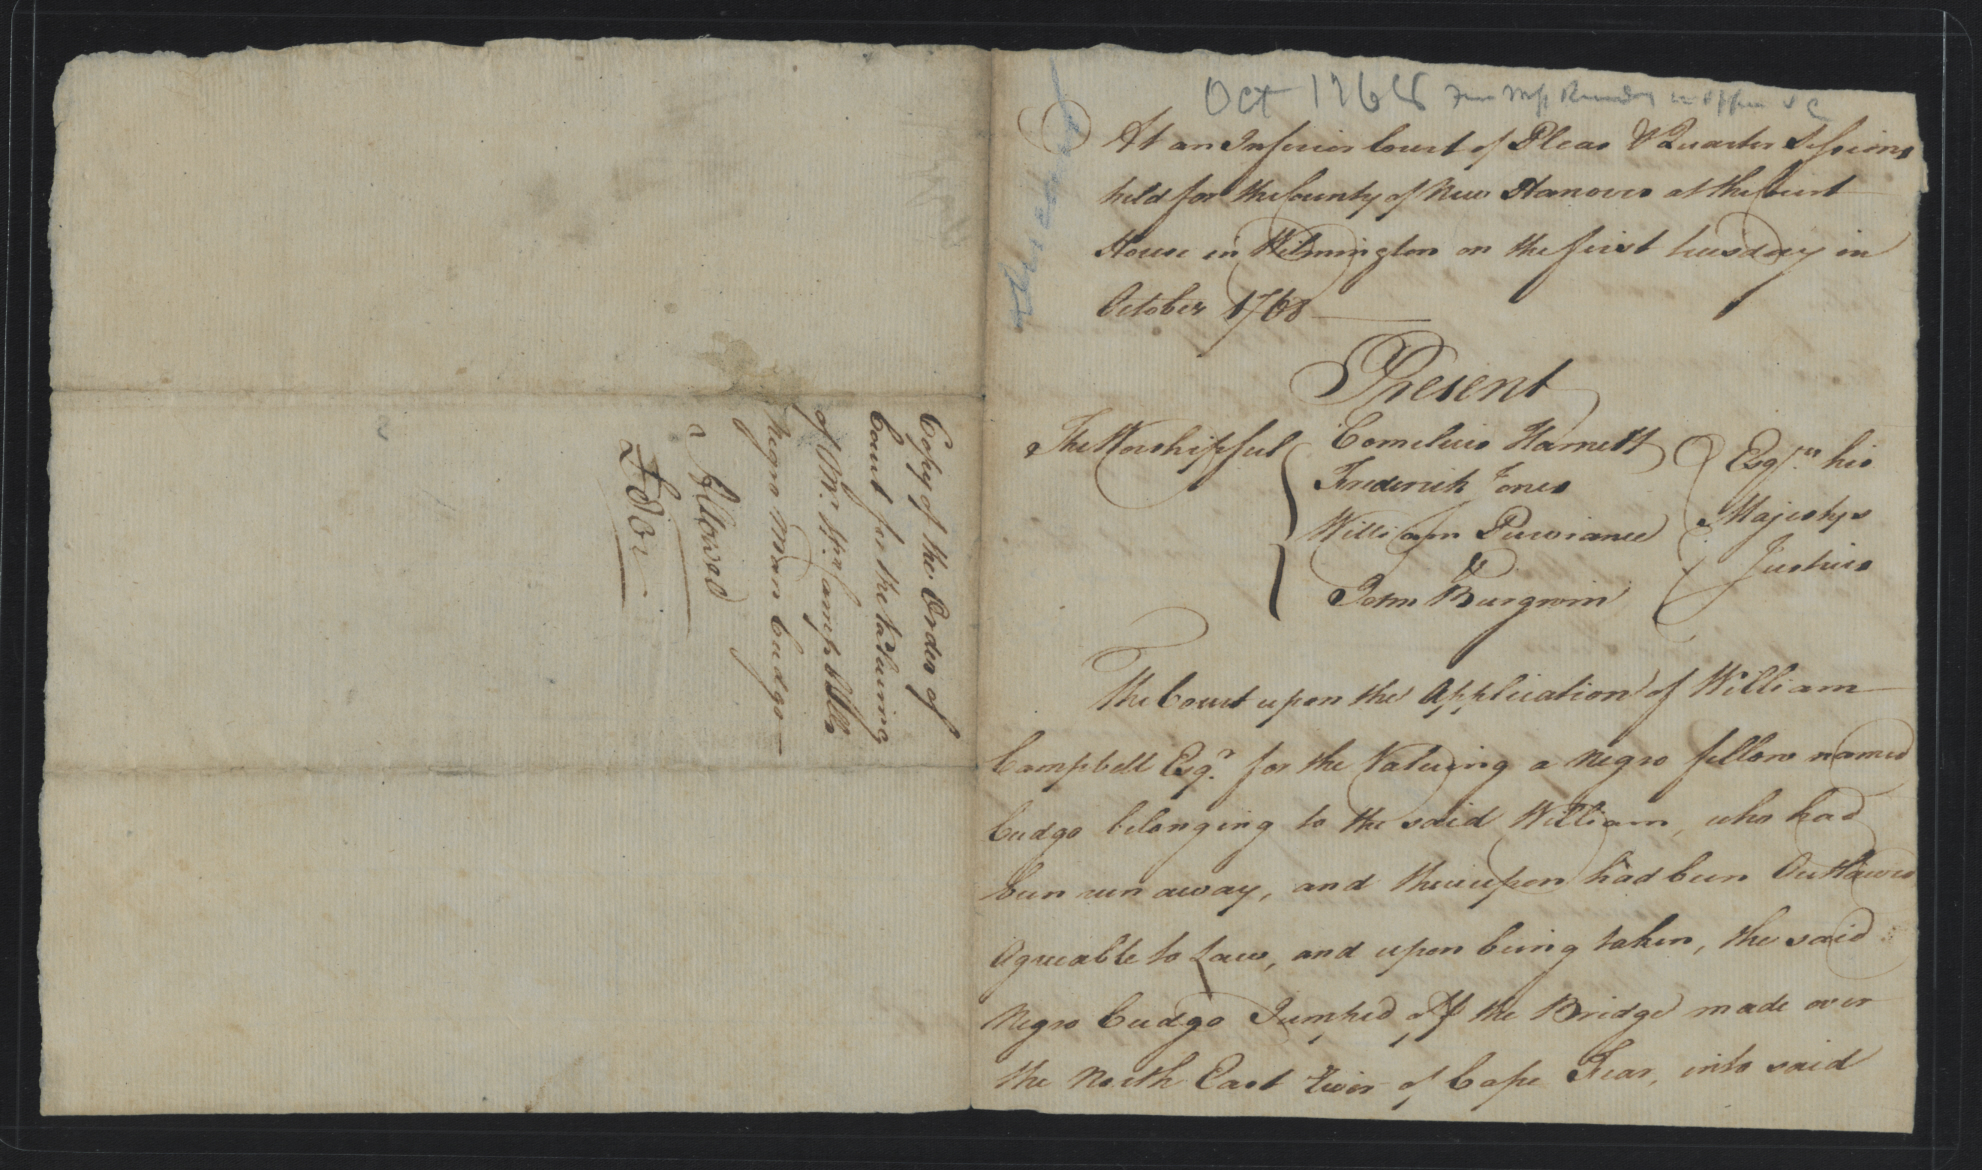 Copy of the Order of
Court for the Valueing
of Mr. Wm. Campbells
Negro Man Cudgo—
Allowed
Oct 1768
At an Inferior Court of Pleas & Quarter Sessions
held for the County of New Hanover at the Court
House in Wilmington on the first tuesday in
October 1768
Present
The Worshipful
Cornelius Harnett
Frederick Jones
William Purviance
&
John Burgwin
Esqrs. his
Majestys
Justices
The Court upon the Application of William
Campbell Esqr. for the Valueing a Negro fellow named
Cudgo belonging to the said William, who had
been run away, and thereupon had been Outlawed
Agreeable to Law, and upon being taken, the said
Negro Cudgo Jumped off the Bridge made over
the North East River of Cape Fear, into said